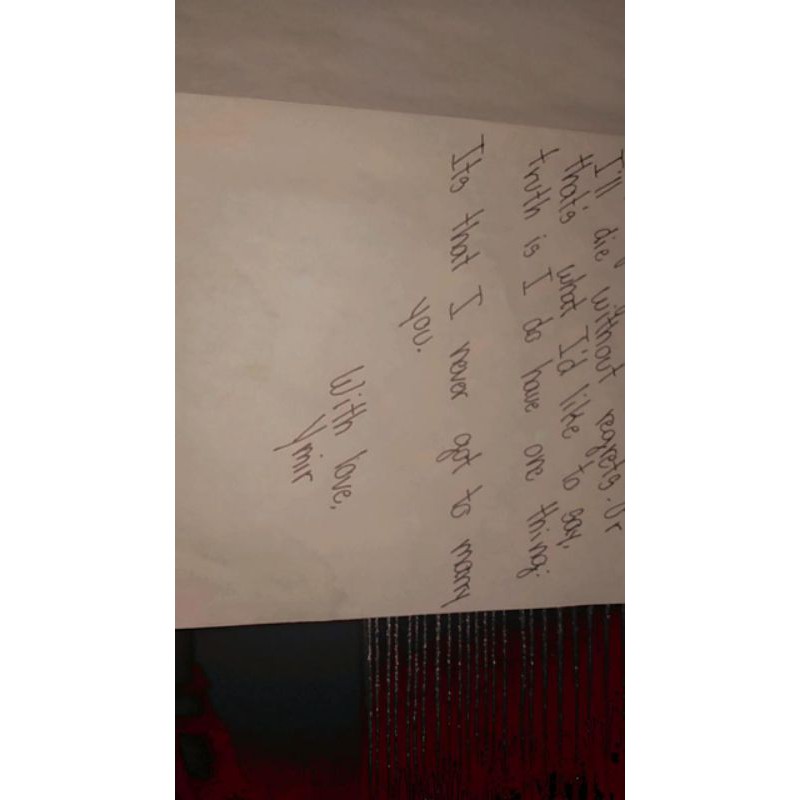 I'll die without regrets. Or
that's what I'd like to say,
truth is I do have one thing:
Its that I never got to marry
you.
With love,
Ymir